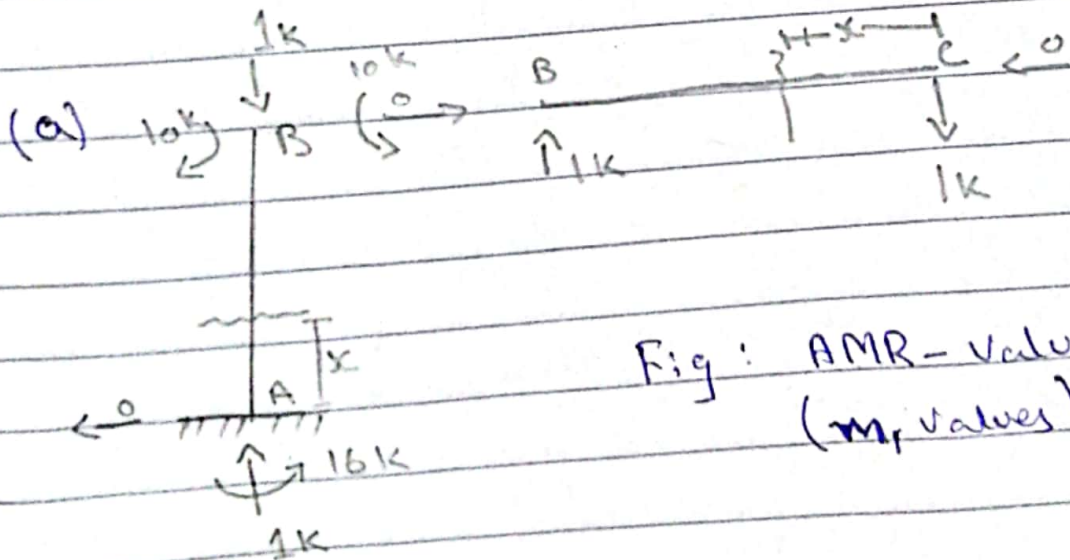 1k
(a) 10k B 10k 0 B x C 0
1k 1k
x
0 A
16k
1k
Fig: AMR - Valu
(m, values)